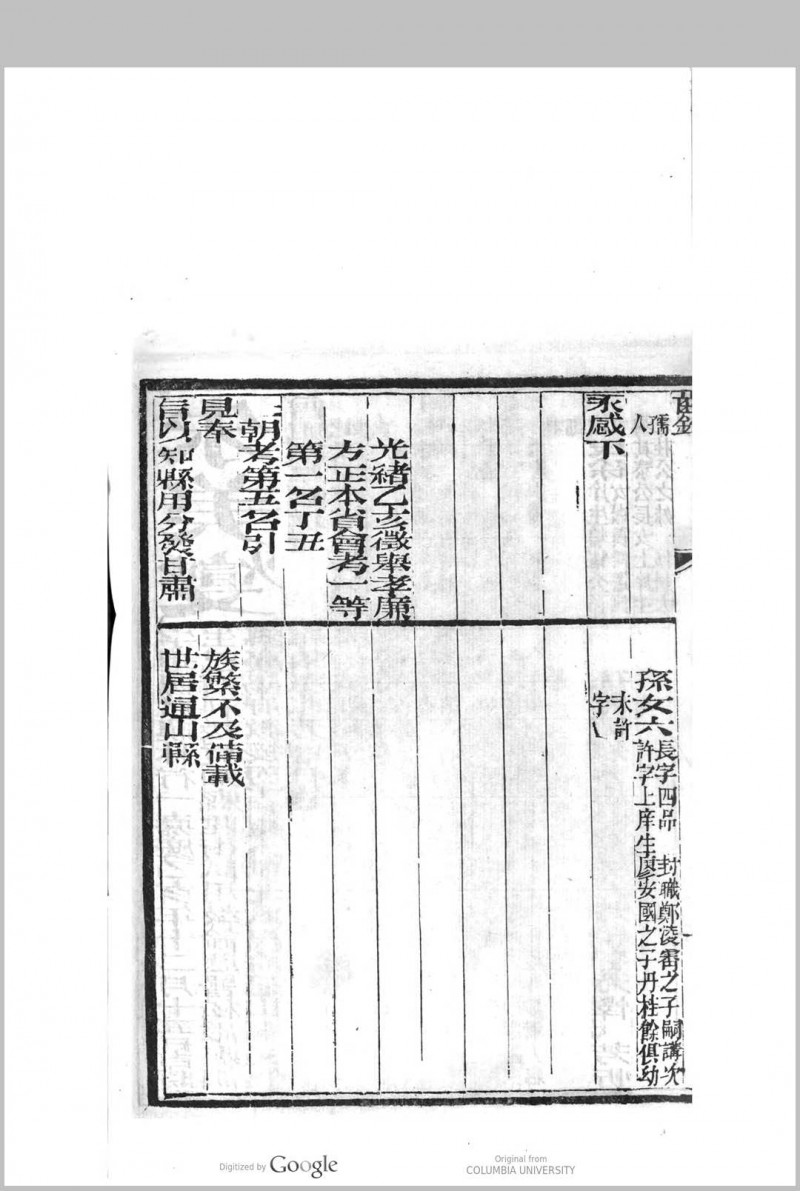 孺
人
永感下
光緒乙亥徵舉孝廉
方正本省會考一等
第一名丁丑
朝考第五名引
見奉
旨以知縣用分發甘肅
孫女六
長字四品　封職鄭凌霄之子嗣講次
許字上庠生廖安國之子丹桂餘俱幼
未許
字
族繁不及備載
世居通山縣
Digitized by Google
Original from
COLUMBIA UNIVERSITY